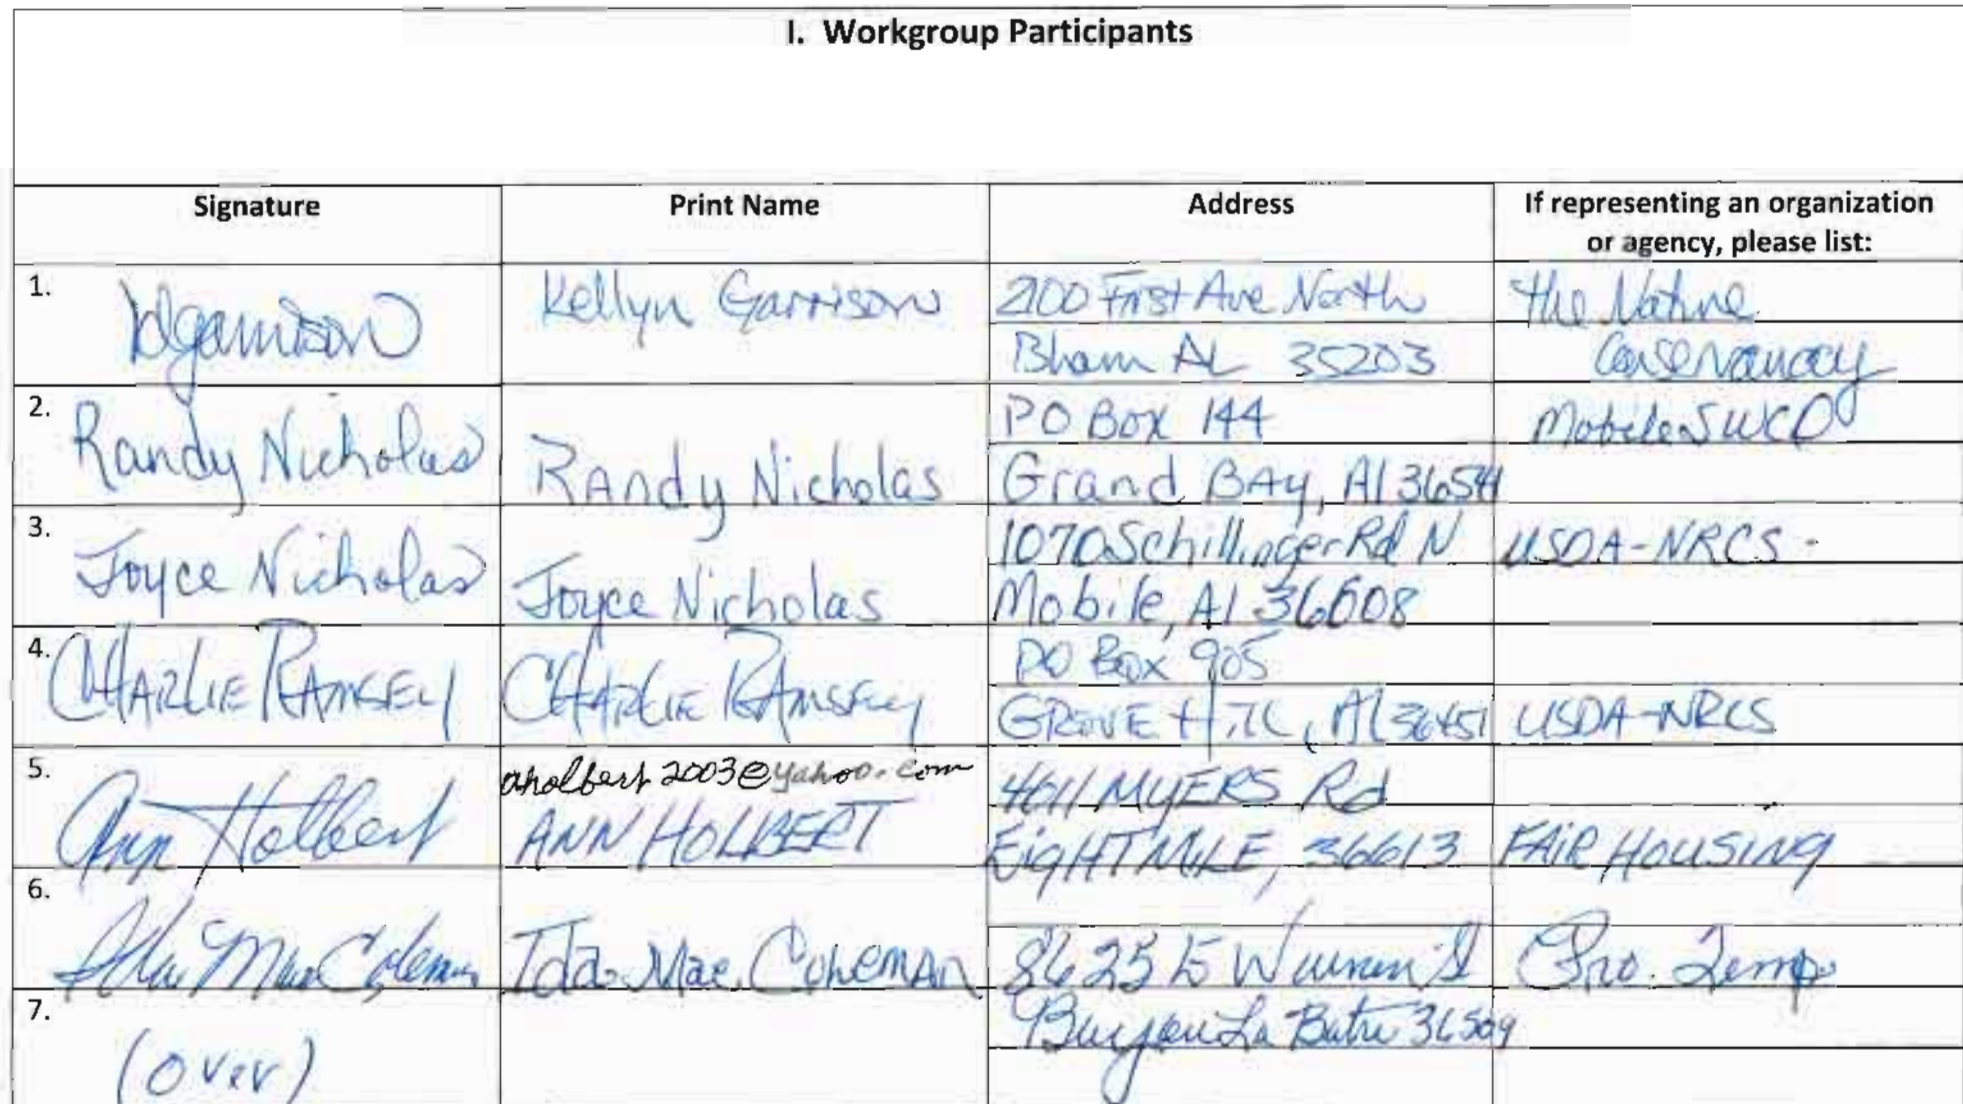 I. Workgroup Participants
Signature
Print Name
Address
If representing an organization
or agency, please list:
1.
Kgarrison
Kellyn Garrison
2100 First Ave North
Bham AL 35203
The Nature
Conservancy
2.
Randy Nicholas
RAndy Nicholas
PO Box 144
Grand BAy, Al 36541
Mobile SWCD
3.
Joyce Nicholas
Joyce Nicholas
1070 Schillinger Rd N
Mobile, Al 36608
USDA-NRCS
4.
CHARLIE RAMSEY
CHARLIE RAMSEY
PO Box 905
GROVE HILL, Al 36451
USDA-NRCS
5.
Ann Holbert
aholbert2003@yahoo.com
ANN HOLBERT
4611 MYERS Rd
EigHT MiLE, 36613
FAIR HOUSING
6.
Ida Mae Coleman
Ida Mae ColemAn
8625 E
Bayou La Batre 36509
Pro. Temp
7.
(over)